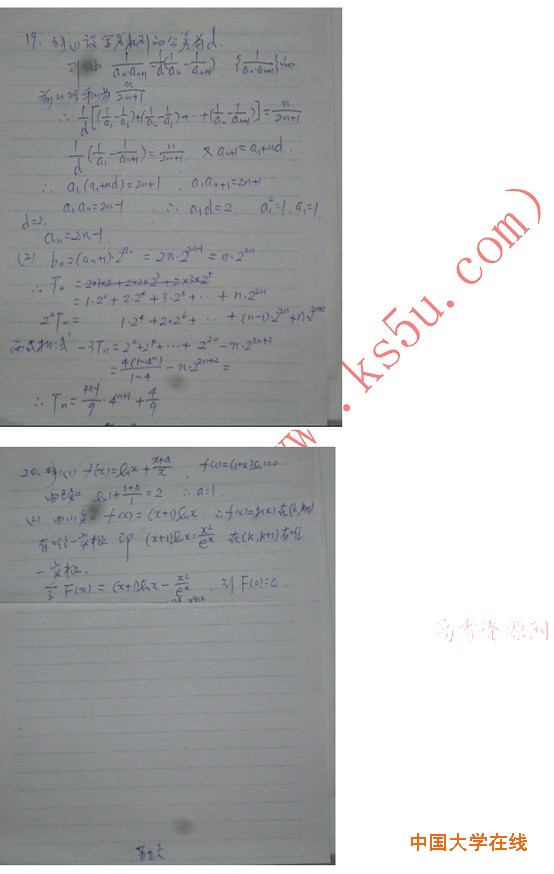 19. 解(1) 设等差数列的公差为d.
则由 1/(aₙ·aₙ₊₁) = 1/d(1/aₙ - 1/aₙ₊₁) {1/(aₙ·aₙ₊₁)}的
前n项和为 n/(2n+1)
∴ 1/d[(1/a₁-1/a₂)+(1/a₂-1/a₃)+…+(1/aₙ-1/aₙ₊₁)] = n/(2n+1)
1/d(1/a₁-1/aₙ₊₁) = n/(2n+1) 又aₙ₊₁=a₁+nd.
∴ a₁(a₁+nd)=2n+1, a₁aₙ₊₁=2n+1
a₁aₙ=2n-1 ∴ a₁d=2 a₁²=1, a₁=1,
d=2,
aₙ=2n-1.
(2) bₙ=(aₙ+1)·2^aₙ = 2n·2²ⁿ⁻¹ = n·2²ⁿ
∴ Tₙ =
= 1·2²+2·2⁴+3·2⁶+…+n·2²ⁿ
2²Tₙ = 1·2⁴+2·2⁶+ … +(n-1)·2²ⁿ+n·2²ⁿ⁺²
两式相减 -3Tₙ=2²+2⁴+…+2²ⁿ-n·2²ⁿ⁺²
= 4(1-4ⁿ)/(1-4) - n·2²ⁿ⁺² =
∴ Tₙ= (3n-1)/9 · 4ⁿ⁺¹ + 4/9
20. 解:(1) f'(x)=lnx+(x+a)/x, f(1)=(1+a)ln1=0.
由已知 ln1+(1+a)/1=2 ∴a=1.
(2) 由(1)知 f(x)=(x+1)lnx ∴f(x)=g(x)在(k,k+1)
有唯一实根. 即 (x+1)lnx=x²/eˣ 在(k,k+1)有唯
一实根.
令F(x)=(x+1)lnx-x²/eˣ 则F(0)=0.
.ks5u.com)
高考资源网
中国大学在线